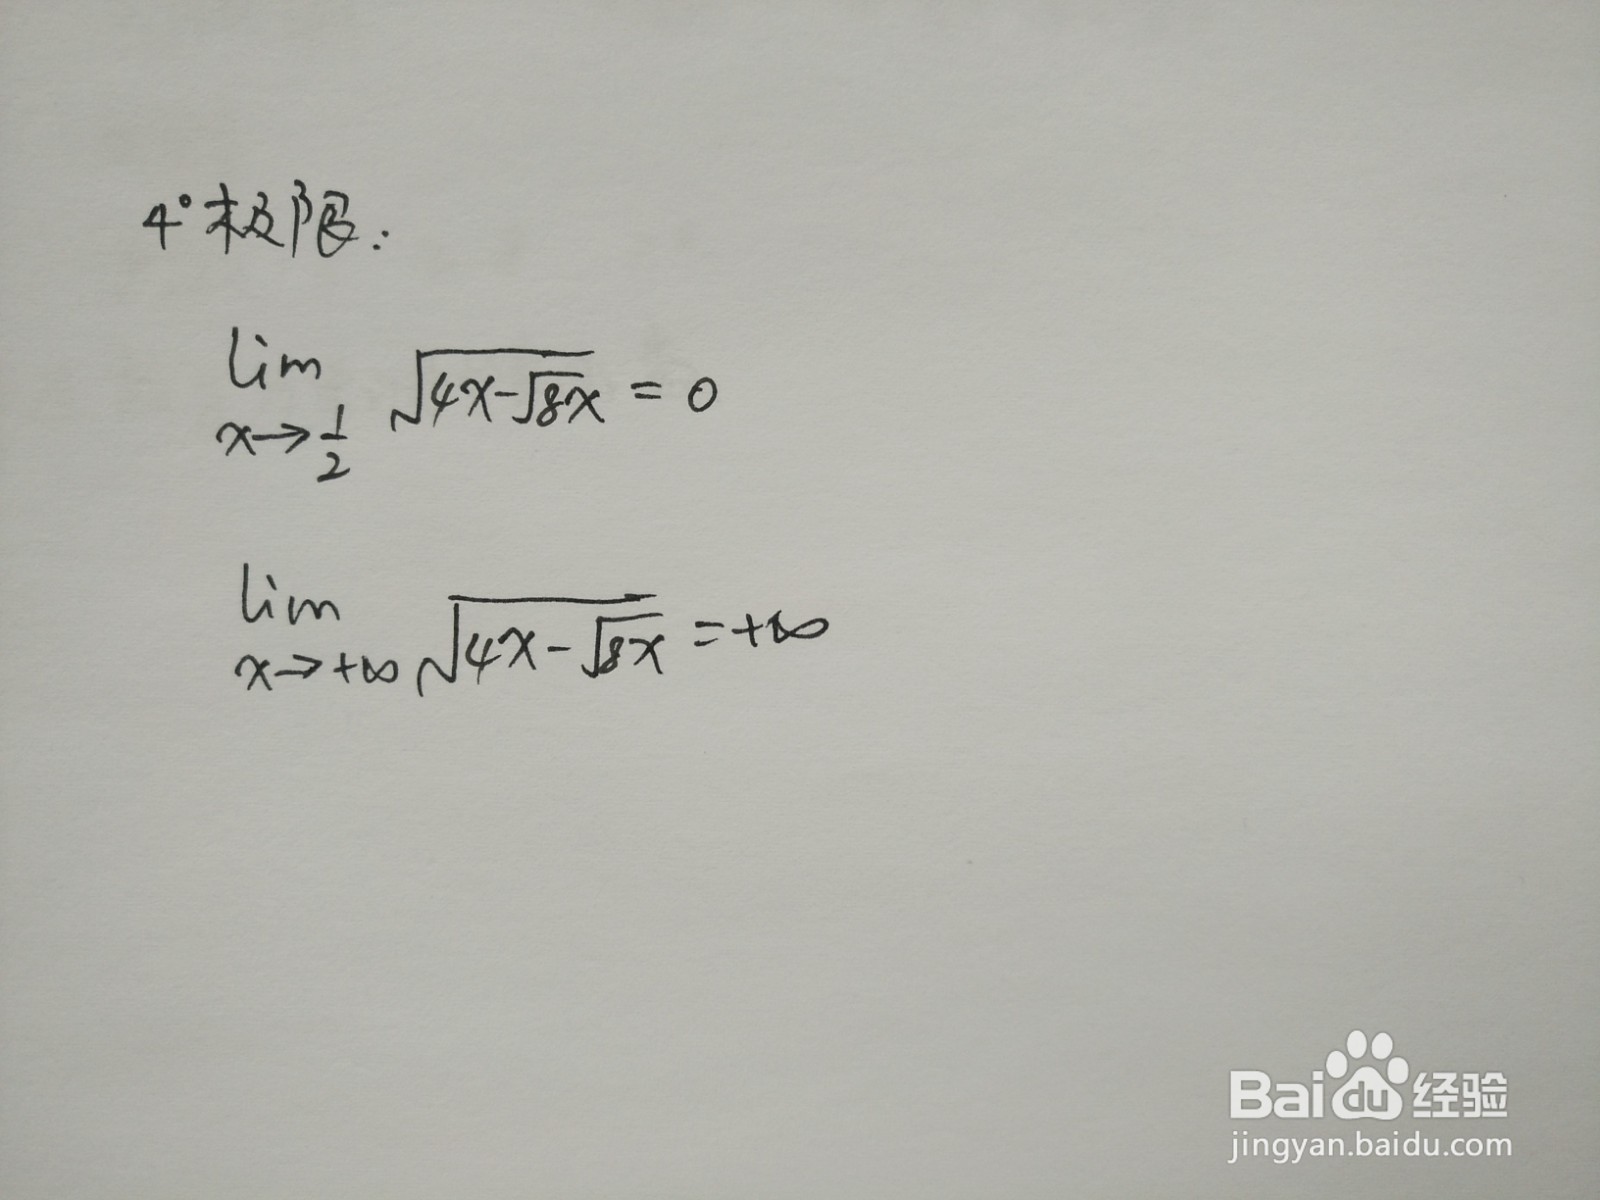 4° 极限:
lim x→1/2 √(4x-√8x) = 0
lim x→+∞ √(4x-√8x) = +∞
Baidu 经验
jingyan.baidu.com